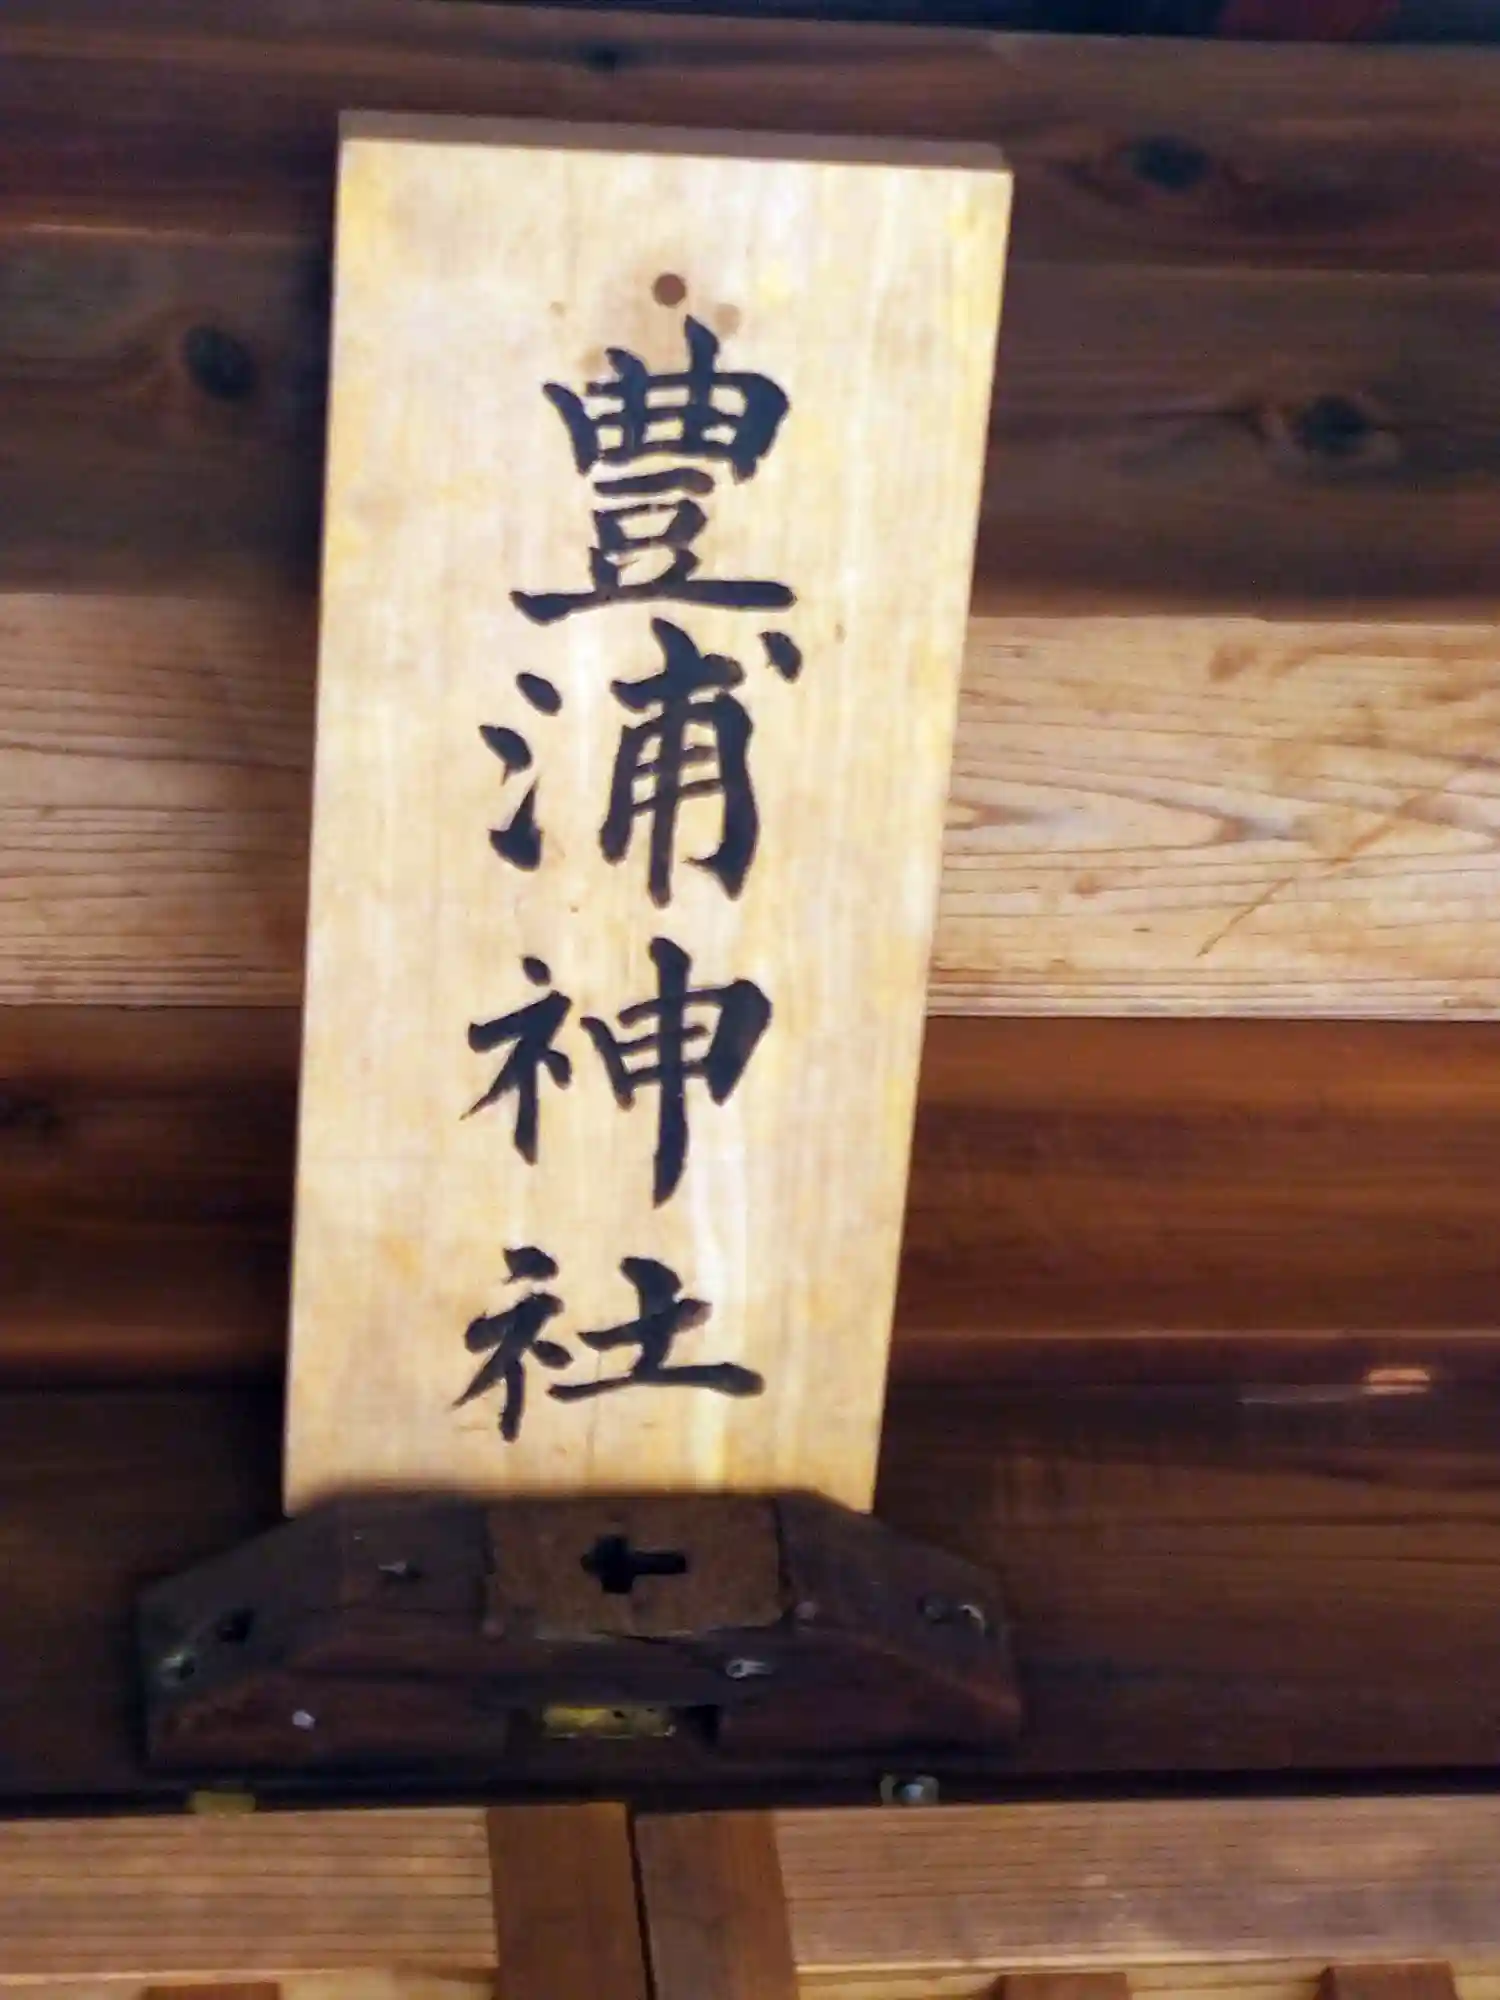 豊浦神社